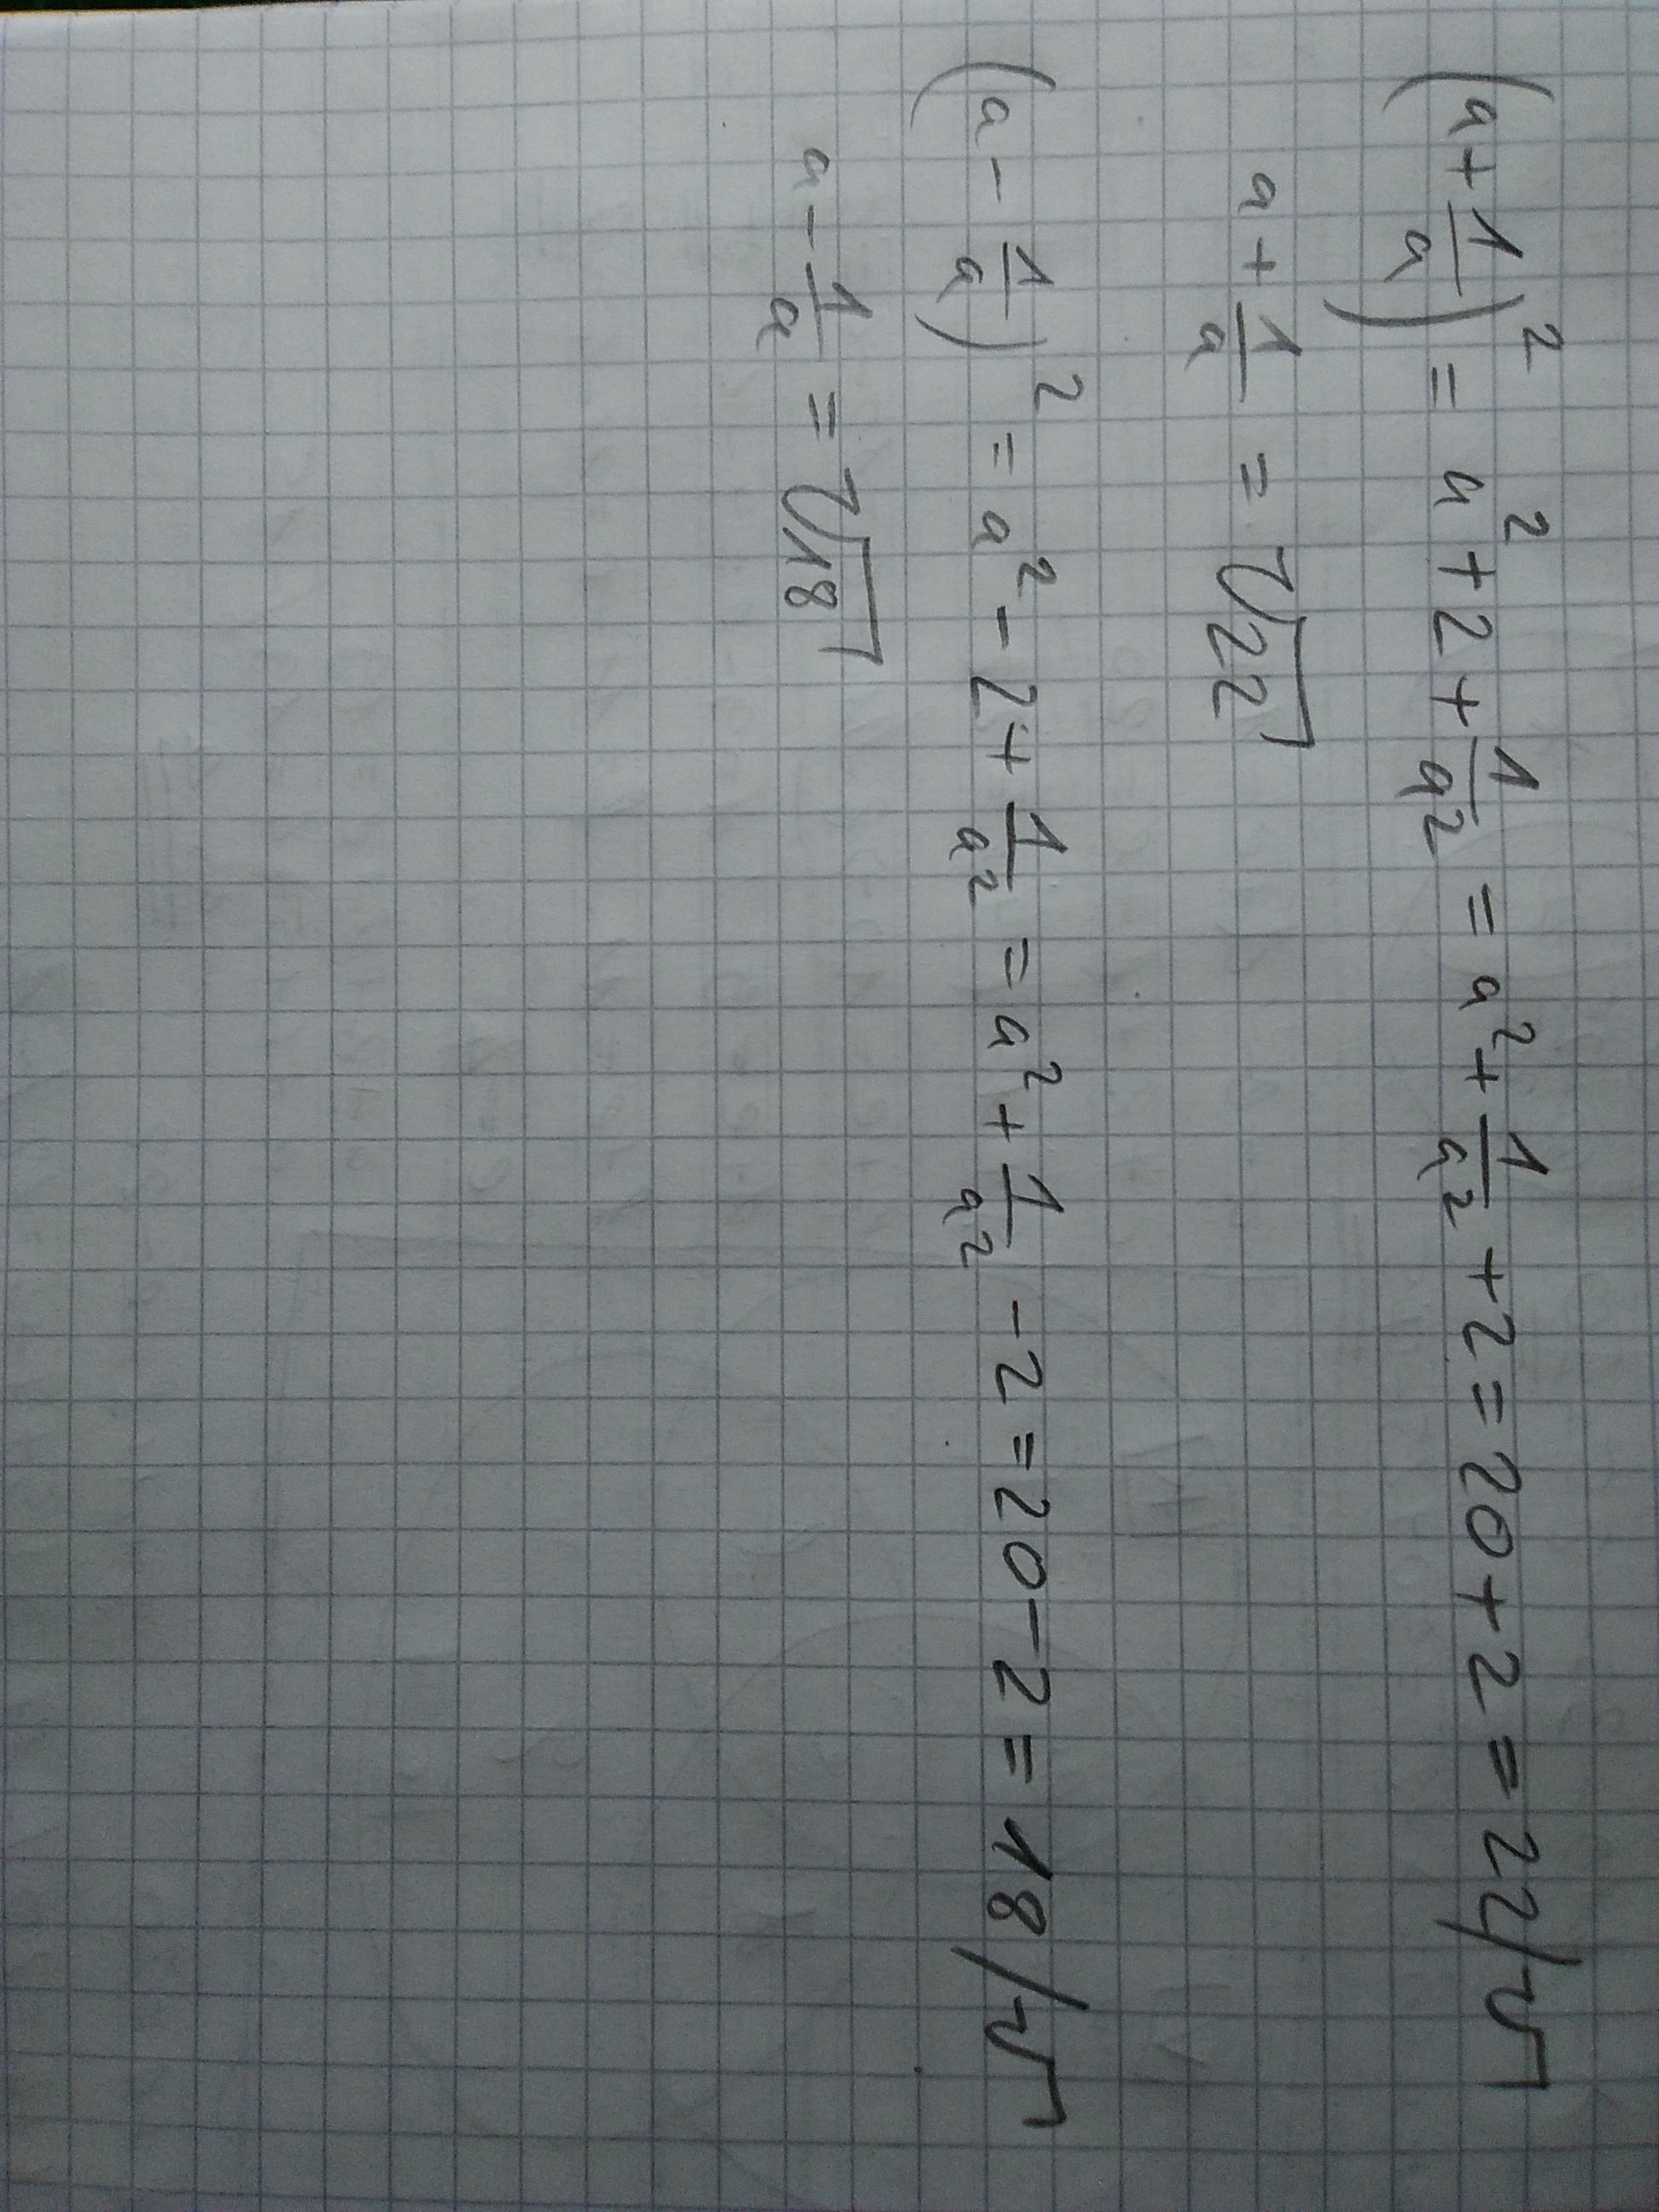 (a + 1/a)² = a² + 2 + 1/a² = a² + 1/a² + 2 = 20 + 2 = 22 /√
a + 1/a = √22
(a - 1/a)² = a² - 2 + 1/a² = a² + 1/a² - 2 = 20 - 2 = 18 /√
a - 1/a = √18